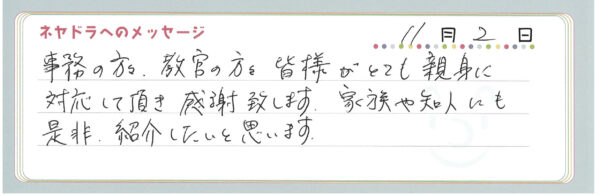 ネヤドラへのメッセージ 11月2日
事務の方を、教官の方を 皆様がとても親身に
対応して頂き 感謝致します。家族や知人にも
是非、紹介したいと思います。